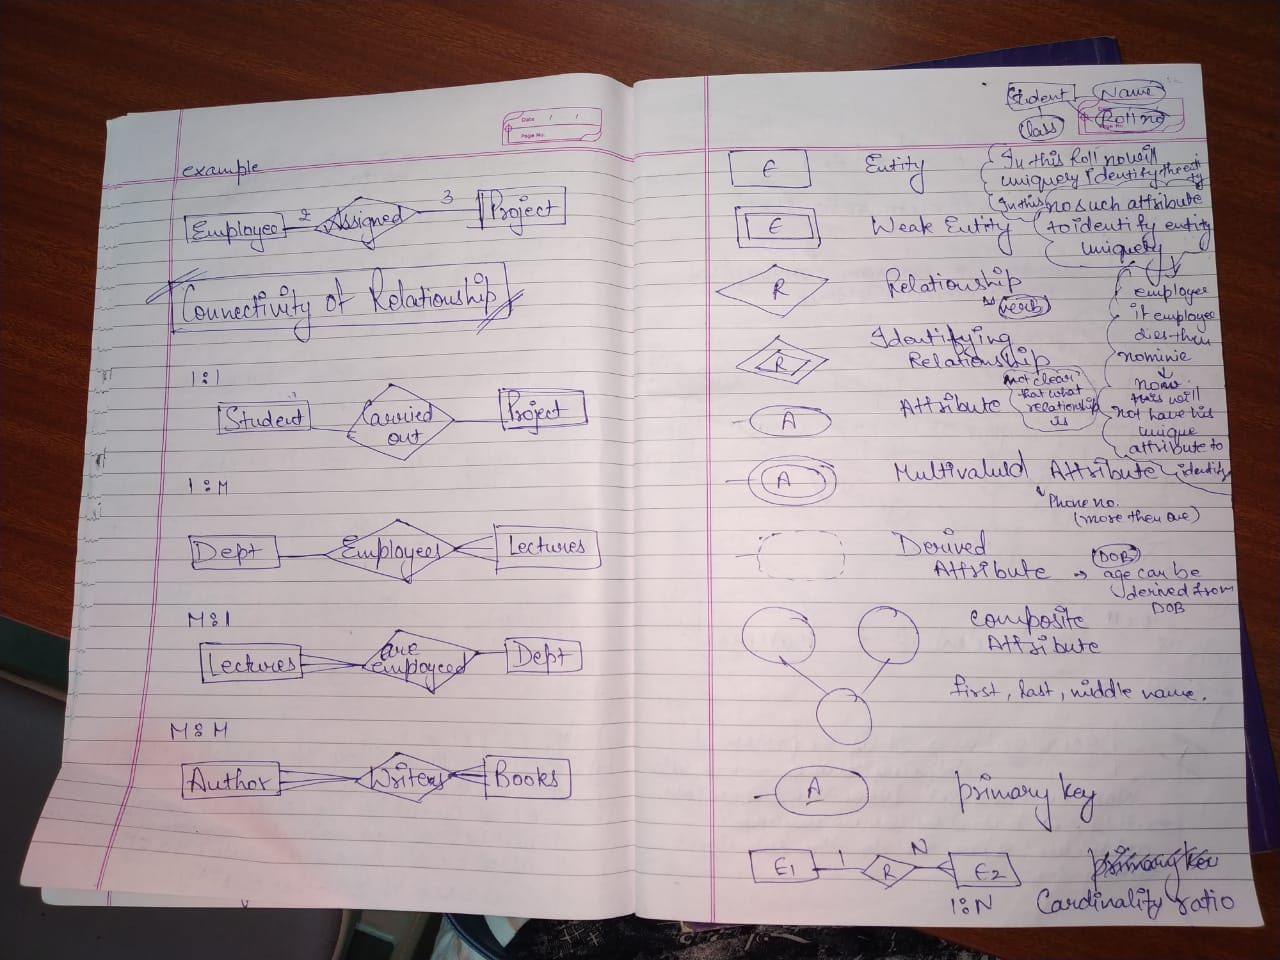 Date / /
Page No.
example
Employee 2 Assigned 3 Project
Connectivity of Relationship
1:1
Student Carried out Project
1:M
Dept Employees Lectures
M:1
Lectures are employeed Dept
M:M
Author Writers Books
Student Name
Class Roll no
E Entity
In this Roll no will
uniquery identify the entity
E Weak Entity
In this no such attribute
to identify entity
uniquery
employee
if employee
dies then
nominie
now
this will
not have his
unique
attribute to
identify
R Relationship
verb
R Identifying
Relationship
not clear
that what
relationship
is
A Attribute
A Multivaluld Attribute
Phone no.
(more then one)
Derived
Attribute → age can be
DOB
derived from
DOB
composite
Attribute
first, last, middle name.
A primary key
E1 1 R N E2
primary key
1:N Cardinality ratio